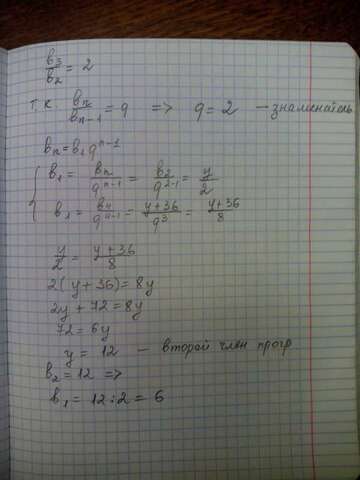 b₃/b₂ = 2
т.к. bₙ/bₙ₋₁ = q => q = 2 — знаменатель
bₙ = b₁qⁿ⁻¹
{ b₁ = bₙ/qⁿ⁻¹ = b₂/q²⁻¹ = y/2
b₁ = b₄/q⁴⁻¹ = y+36/q³ = y+36/8
y/2 = y+36/8
2(y+36) = 8y
2y + 72 = 8y
72 = 6y
y = 12 — второй член прогр
b₂ = 12 =>
b₁ = 12:2 = 6